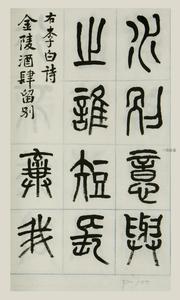 水別意與
之誰短長
右李白詩
金陵酒肆留別
棄我